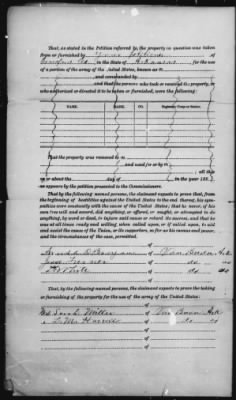 That, as stated in the Petition referred to, the property in question was taken
from or furnished by your petitioner of
Crawford Co in the State of Arkansas for the use
of a portion of the army of the United States, known as
and commanded by
and that the persons who took or received the property, or
who authorized or directed it to be taken or furnished, were the following:
NAME. NAME. CO. Regiment, Corps or Station.
That the property was removed to
and used for or by
all this
on or about the day of in the year 186
as appears by the petition presented to the Commissioners.
That by the following named persons, the claimant expects to prove that, from
the beginning of hostilities against the United States to the end thereof, his sym-
pathies were constantly with the cause of the United States; that he never, of his
own free will and accord, did anything, or offered, or sought, or attempted to do
anything, by word or deed, to injure said cause or retard its success, and that he
was at all times ready and willing when called upon, or if called upon, to aid
and assist the cause of the Union, or its supporters, so far as his means and power,
and the circumstances of the case, permitted.
of
of Van Buren Ark
of do do
of do do
of
That by the following named persons, the claimant expects to prove the taking
or furnishing of the property for the use of the army of the United States:
of
Miller of Van Buren Ark
of do do
of
of
of